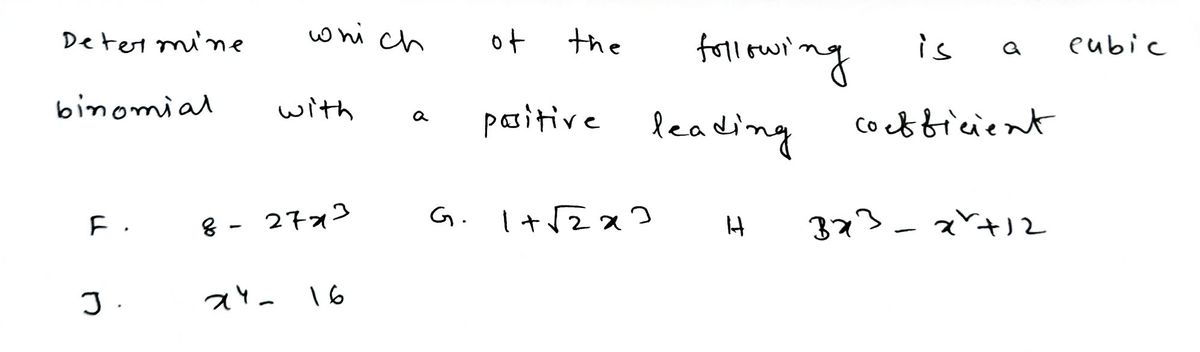 Determine which of the following is a cubic
binomial with a positive leading coefficient
F. 8 - 27x³ G. 1+√2 x³ H 3x³ - x²+12
J. x⁴ - 16